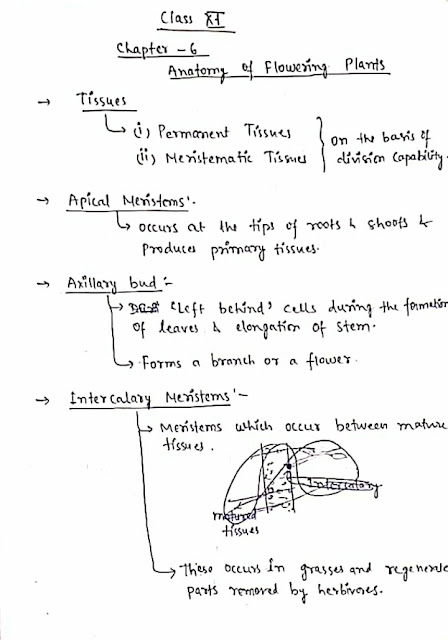 Class XI
Chapter - 6
Anatomy of Flowering Plants
→ Tissues
(i) Permanent Tissues
(ii) Meristematic Tissues
on the basis of
division capability.
→ Apical Meristems:-
occurs at the tips of roots & shoots &
Produces primary tissues.
→ Axillary bud:-
'Left behind' cells during the formation
of leaves & elongation of stem.
Forms a branch or a flower.
→ Intercalary Meristems:-
Meristems which occur between mature
tissues.
Intercalary
matured
tissues
These occurs in grasses and regenerate
parts removed by herbivores.